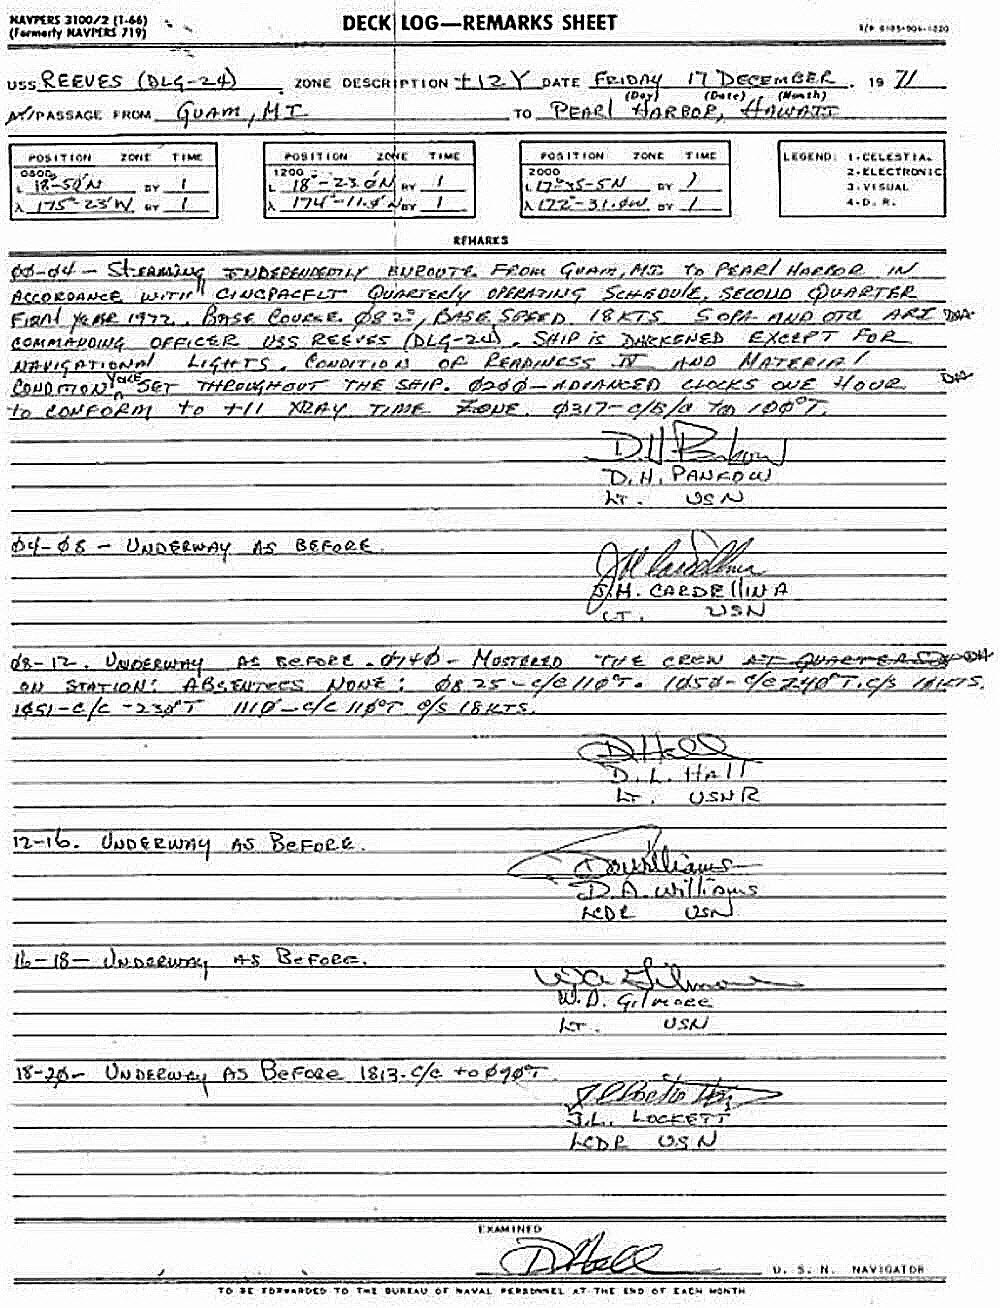 NAVPERS 3100/2 (1-66)
(Formerly NAVPERS 719)
DECK LOG—REMARKS SHEET
USS REEVES (DLG-24) ZONE DESCRIPTION +12Y DATE FRIDAY 17 DECEMBER 19 71
(Day) (Date) (Month)
AT/PASSAGE FROM GUAM, MI TO PEARL HARBOR, HAWAII
POSITION ZONE TIME
0800
L 18-50'N BY 1
λ 175°-23'W BY 1
POSITION ZONE TIME
1200
L 18°-23.0'N BY 1
λ 174°-11.0'W BY 1
POSITION ZONE TIME
2000
L 17°35-5N BY 1
λ 172°-31.0W BY 1
LEGEND: 1-CELESTIAL
2-ELECTRONIC
3-VISUAL
4-D. R.
REMARKS
00-04 - STEAMING INDEPENDENTLY ENROUTE FROM GUAM, MI. TO PEARL HARBOR IN
ACCORDANCE WITH CINCPACFLT QUARTERLY OPERATING SCHEDULE, SECOND QUARTER
FISCAL YEAR 1972. BASE COURSE 082°, BASE SPEED 18 KTS SOPA AND OTC ARE
COMMANDING OFFICER USS REEVES (DLG-24). SHIP IS DARKENED EXCEPT FOR
NAVIGATIONAL LIGHTS. CONDITION OF READINESS IV AND MATERIAL
CONDITION YOKE SET THROUGHOUT THE SHIP. 0200 - ADVANCED CLOCKS ONE HOUR
TO CONFORM TO +11 XRAY TIME ZONE. 0317 - C/B/C TO 100°T.
D. H. PANKOW
LT. USN
04-08 - UNDERWAY AS BEFORE.
J.H. CARDELLINA
LT. USN
08-12. UNDERWAY AS BEFORE. 0740 - MUSTERED THE CREW AT QUARTERS
ON STATION: ABSENTEES NONE: 0825 - C/C 110°T. 1050 - C/C 240°T. C/S KTS.
1051 - C/C - 230°T 1110 - C/C 110°T C/S 18 KTS.
D. L. Hall
LT. USNR
12-16. UNDERWAY AS BEFORE.
D.A. Williams
LCDR USN
16-18 - UNDERWAY AS BEFORE.
W.A. Gilmore
LT. USN
18-20 - UNDERWAY AS BEFORE 1813. C/C to 090°T
J.L. LOCKETT
LCDR USN
EXAMINED
D Hall U. S. N. NAVIGATOR
TO BE FORWARDED TO THE BUREAU OF NAVAL PERSONNEL AT THE END OF EACH MONTH